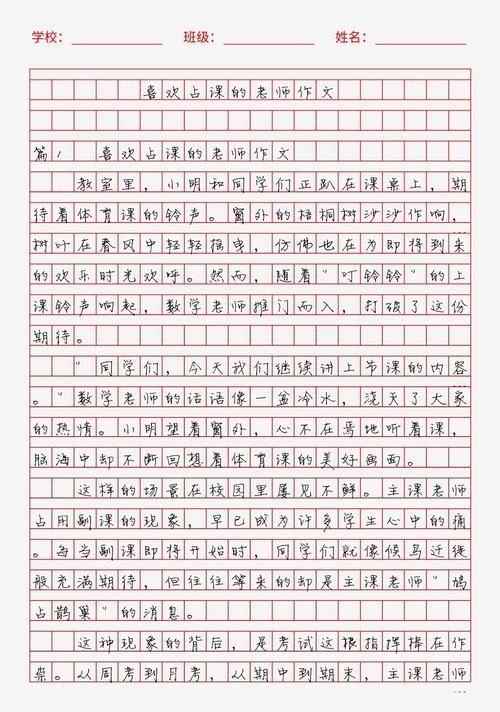 学校： 班级： 姓名：
喜欢占课的老师作文
篇1 喜欢占课的老师作文
教室里，小明和同学们正趴在课桌上，期
待着体育课的铃声。窗外的梧桐树沙沙作响，
树叶在春风中轻轻摇曳，仿佛也在为即将到来
的欢乐时光欢呼。然而，随着"叮铃铃"的上
课铃声响起，数学老师推门而入，打破了这份
期待。
"同学们，今天我们继续讲上节课的内容
。"数学老师的话语像一盆冷水，浇灭了大家
的热情。小明望着窗外，心不在焉地听着课，
脑海中却不断回想着体育课的美好画面。
这样的场景在校园里屡见不鲜。主课老师
占用副课的现象，早已成为许多学生心中的痛
。每当副课即将开始时，同学们就像候鸟迁徙
般充满期待，但往往等来的却是主课老师"鸠
占鹊巢"的消息。
这种现象的背后，是考试这根指挥棒在作
祟。从周考到月考，从期中到期末，主课老师